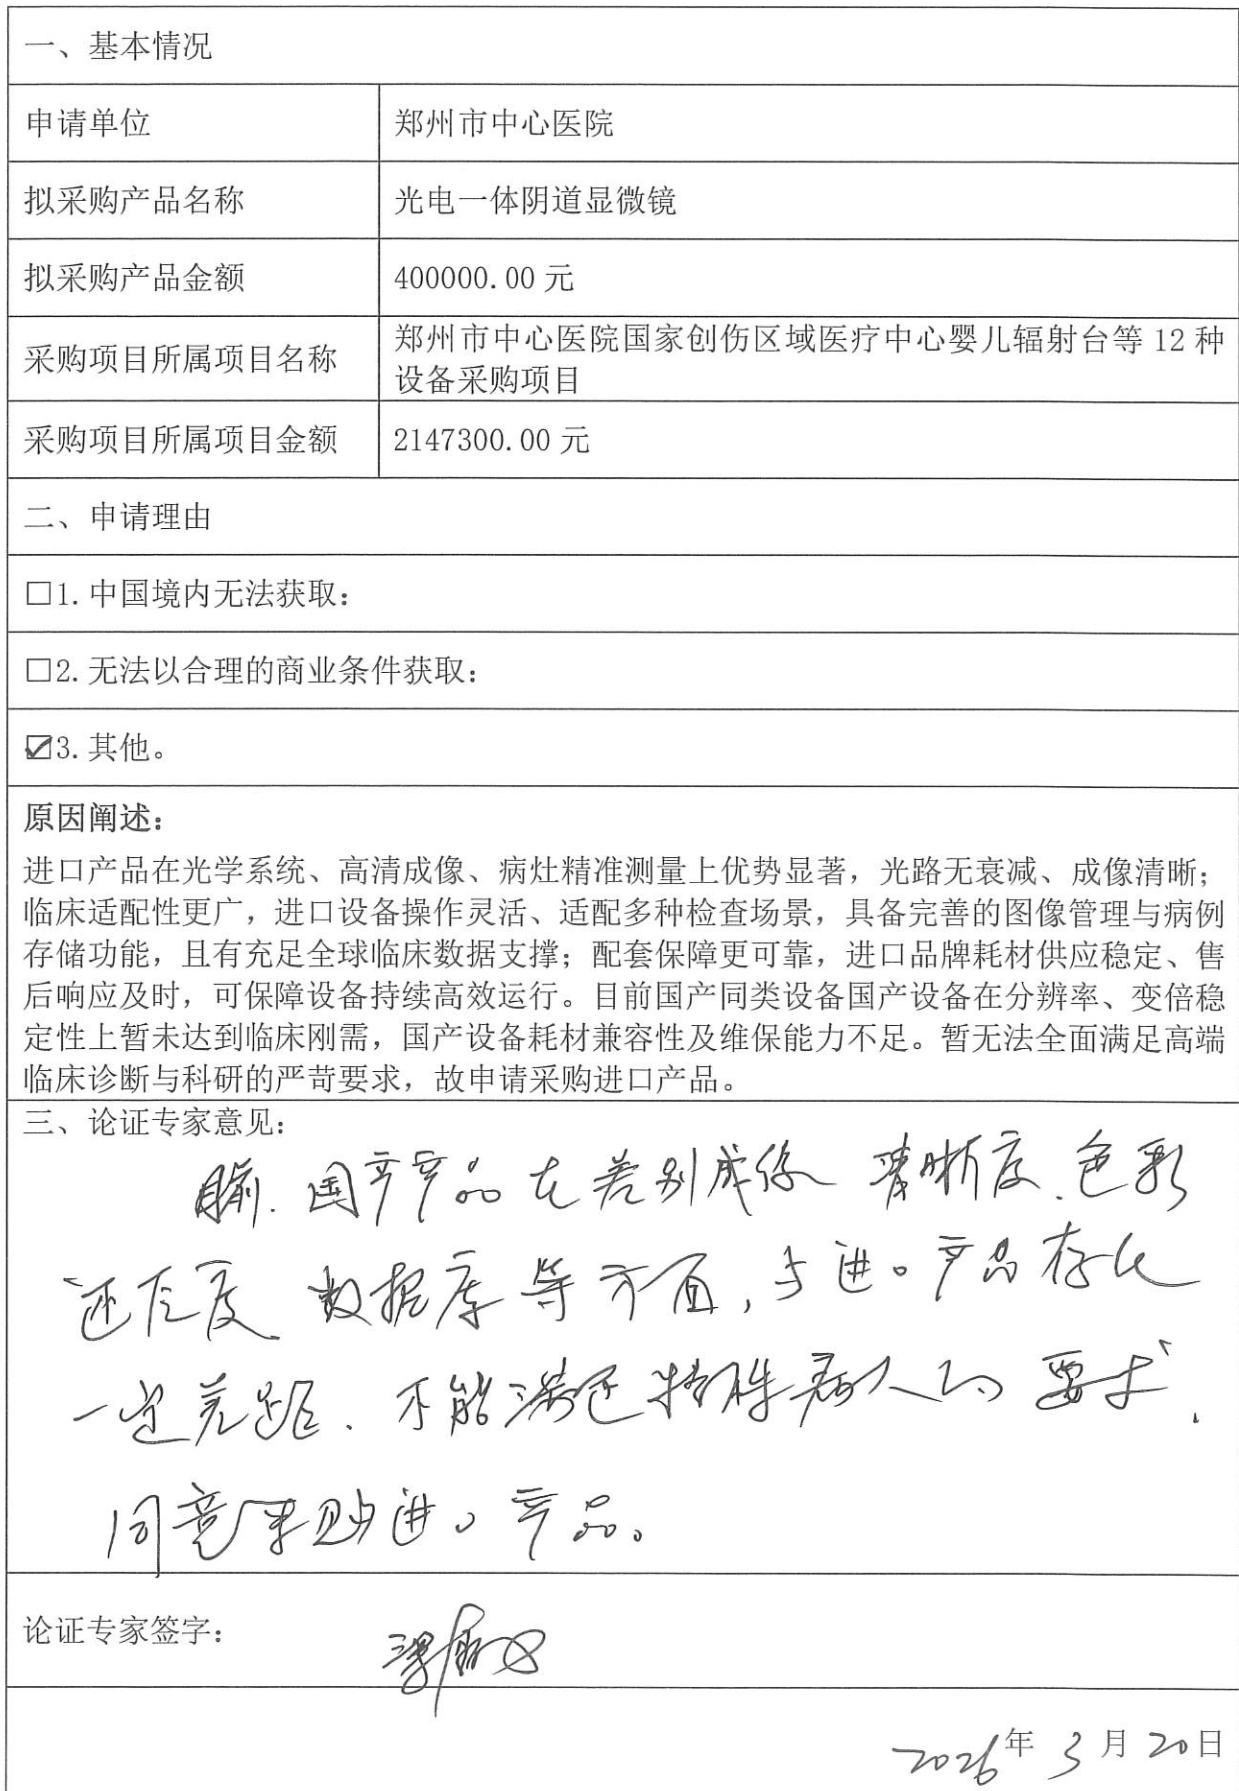 一、基本情况
申请单位 郑州市中心医院
拟采购产品名称 光电一体阴道显微镜
拟采购产品金额 400000.00 元
采购项目所属项目名称 郑州市中心医院国家创伤区域医疗中心婴儿辐射台等 12 种
设备采购项目
采购项目所属项目金额 2147300.00 元
二、申请理由
□1.中国境内无法获取：
□2.无法以合理的商业条件获取：
☑3.其他。
原因阐述：
进口产品在光学系统、高清成像、病灶精准测量上优势显著，光路无衰减、成像清晰；
临床适配性更广，进口设备操作灵活、适配多种检查场景，具备完善的图像管理与病例
存储功能，且有充足全球临床数据支撑；配套保障更可靠，进口品牌耗材供应稳定、售
后响应及时，可保障设备持续高效运行。目前国产同类设备国产设备在分辨率、变倍稳
定性上暂未达到临床刚需，国产设备耗材兼容性及维保能力不足。暂无法全面满足高端
临床诊断与科研的严苛要求，故申请采购进口产品。
三、论证专家意见：
目前，国产产品在差别成像 清晰度、色彩
还原度、数据库等方面，与进口产品存在
一定差距，不能满足特殊病人的要求，
同意采购进口产品。
论证专家签字：
2026年 3 月 20日